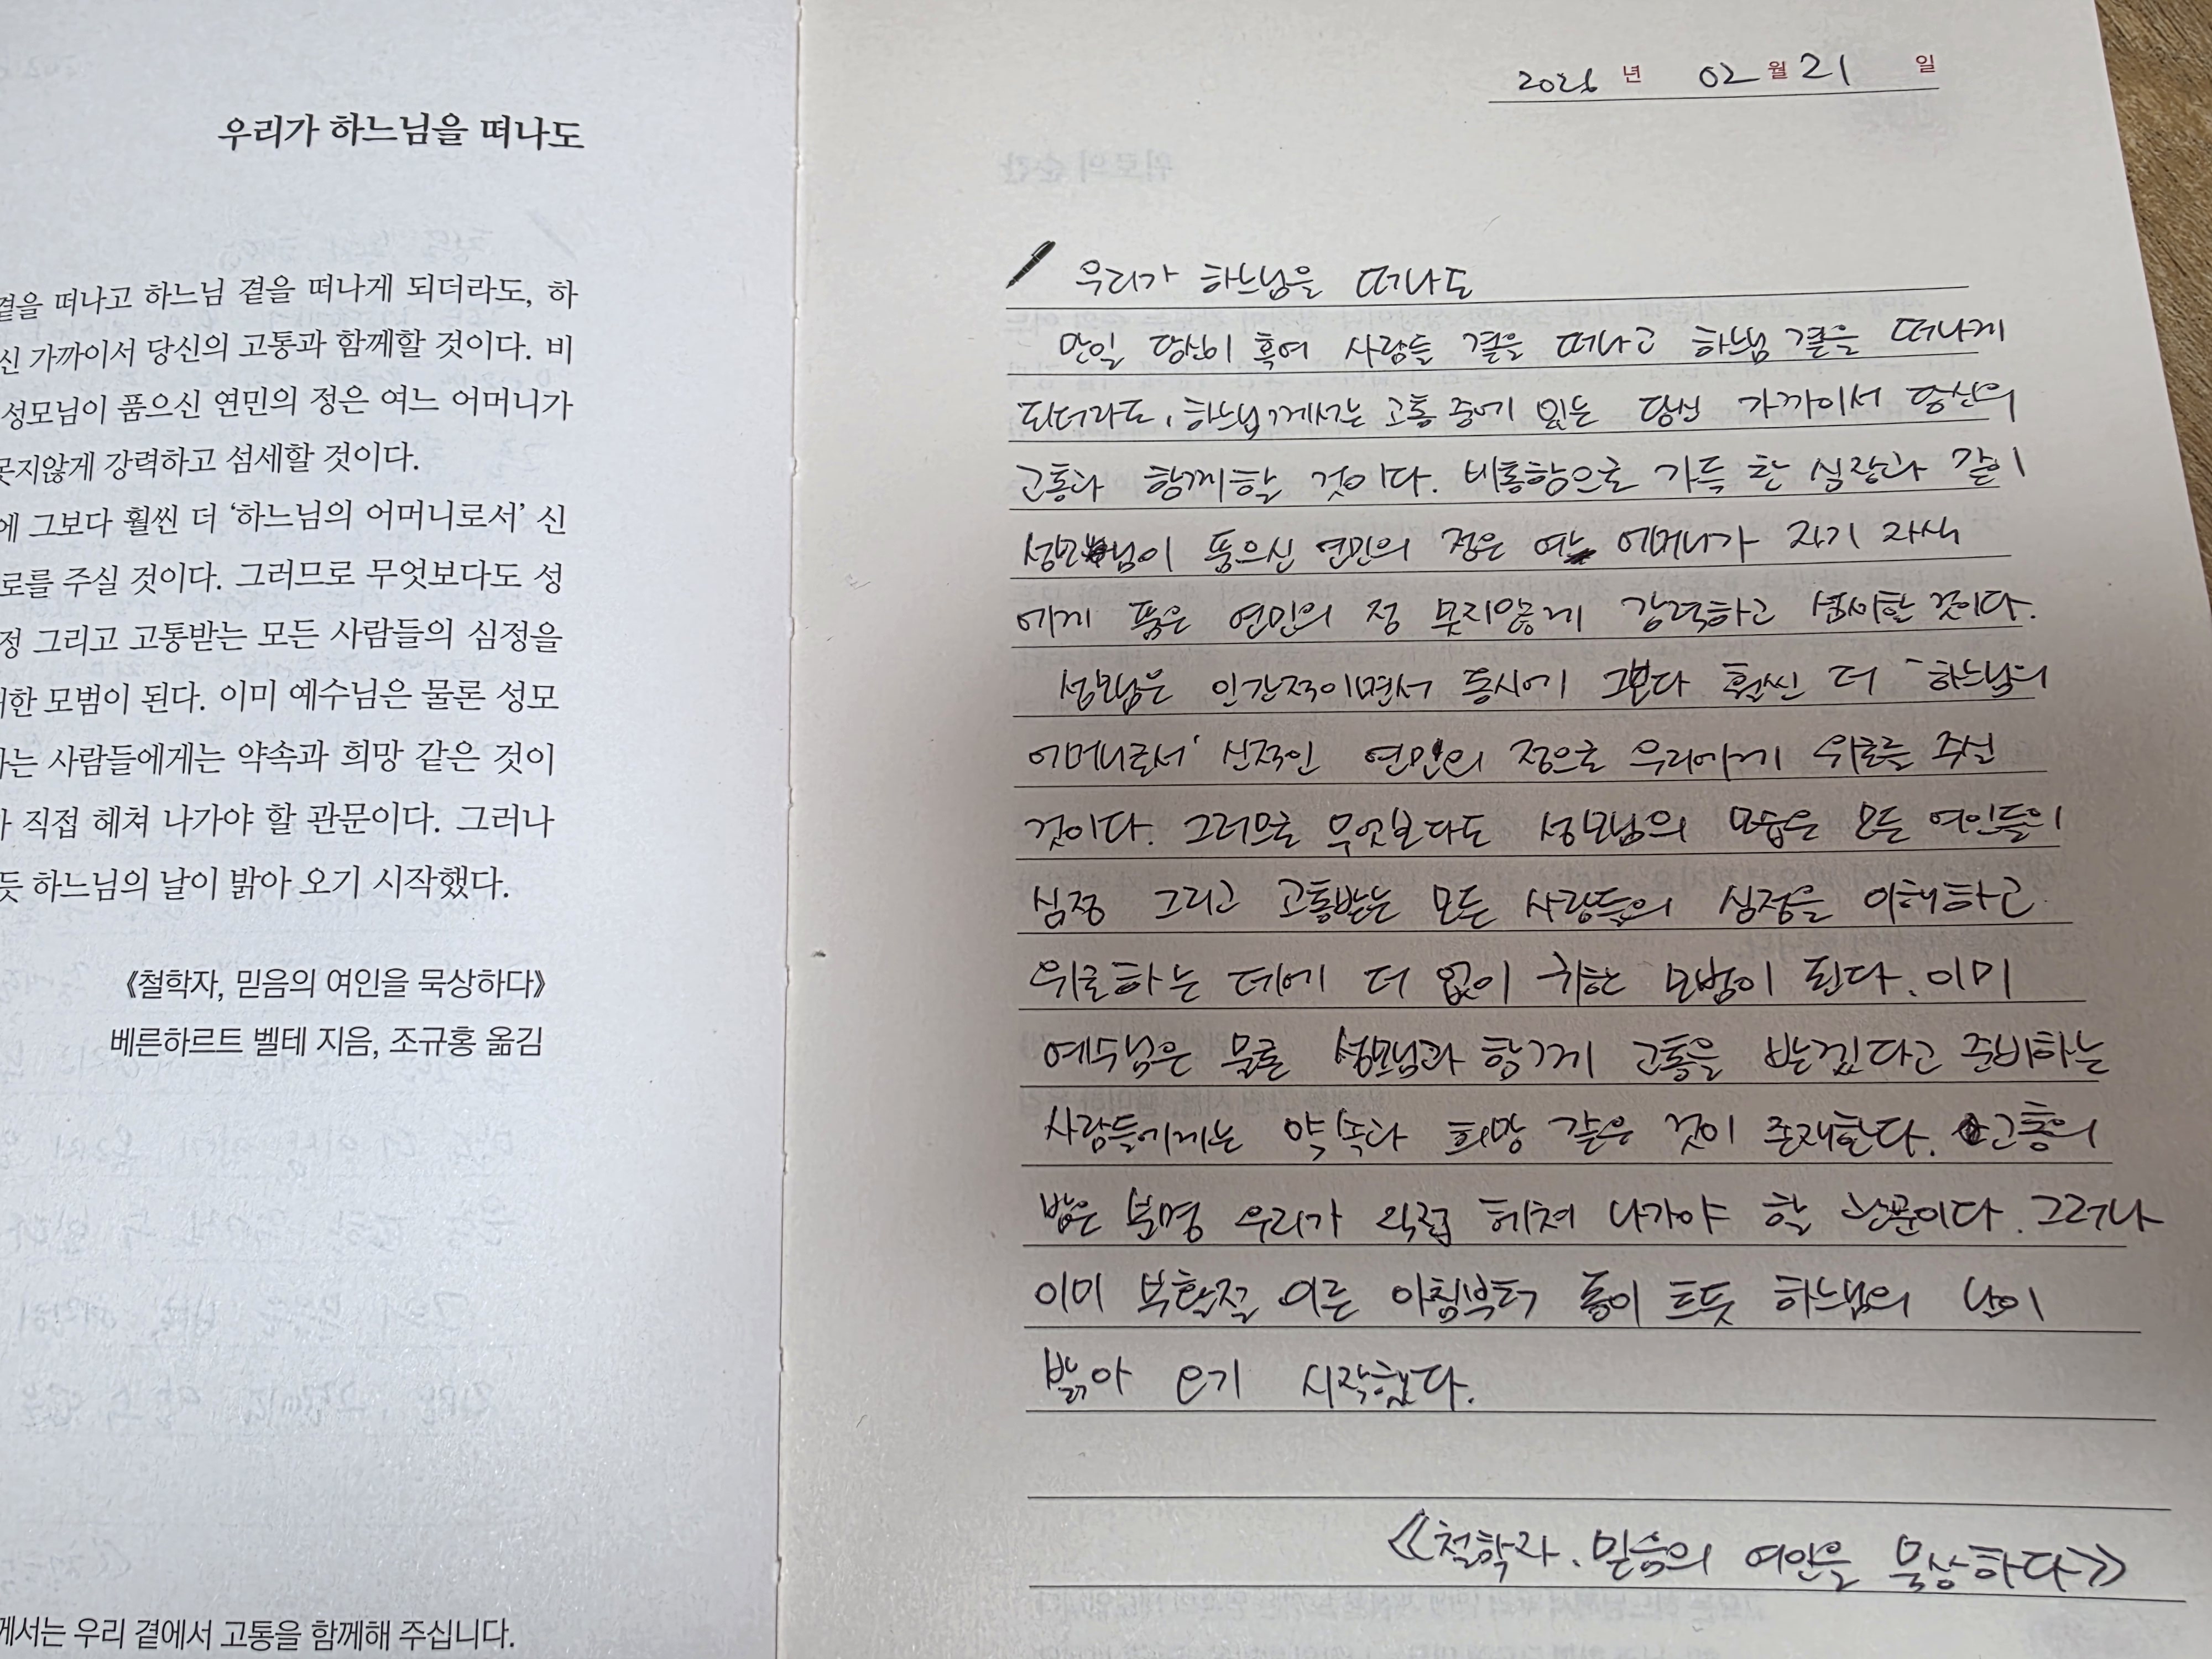 우리가 하느님을 떠나도
곁을 떠나고 하느님 곁을 떠나게 되더라도, 하
신 가까이서 당신의 고통과 함께할 것이다. 비
성모님이 품으신 연민의 정은 여느 어머니가
못지않게 강력하고 섬세할 것이다.
에 그보다 훨씬 더 ‘하느님의 어머니로서’ 신
로를 주실 것이다. 그러므로 무엇보다도 성
정 그리고 고통받는 모든 사람들의 심정을
한 모범이 된다. 이미 예수님은 물론 성모
는 사람들에게는 약속과 희망 같은 것이
직접 헤쳐 나가야 할 관문이다. 그러나
듯 하느님의 날이 밝아 오기 시작했다.
《철학자, 믿음의 여인을 묵상하다》
베른하르트 벨테 지음, 조규홍 옮김
께서는 우리 곁에서 고통을 함께해 주십니다.
2026 년 02 월 21 일
우리가 하느님을 떠나도
만일 당신이 혹여 사람들 곁을 떠나고 하느님 곁을 떠나게
되더라도, 하느님께서는 고통 중에 있는 당신 가까이서 당신의
고통과 함께할 것이다. 비통함으로 가득 찬 심장과 같이
성모님이 품으신 연민의 정은 여느 어머니가 자기 자식
에게 품은 연민의 정 못지않게 강력하고 섬세할 것이다.
성모님은 인간적이면서 동시에 그보다 훨씬 더 '하느님의
어머니로서' 신적인 연민의 정으로 우리에게 위로를 주실
것이다. 그러므로 무엇보다도 성모님의 모습은 모든 여인들의
심정 그리고 고통받는 모든 사람들의 심정을 이해하고
위로하는 데에 더 없이 귀한 모범이 된다. 이미
예수님은 물론 성모님과 함께 고통을 받겠다고 준비하는
사람들에게는 약속과 희망 같은 것이 존재한다. 고통의
밤은 분명 우리가 직접 헤쳐 나가야 할 관문이다. 그러나
이미 부활절 이른 아침부터 동이 트듯 하느님의 날이
밝아 오기 시작했다.
《철학자, 믿음의 여인을 묵상하다》